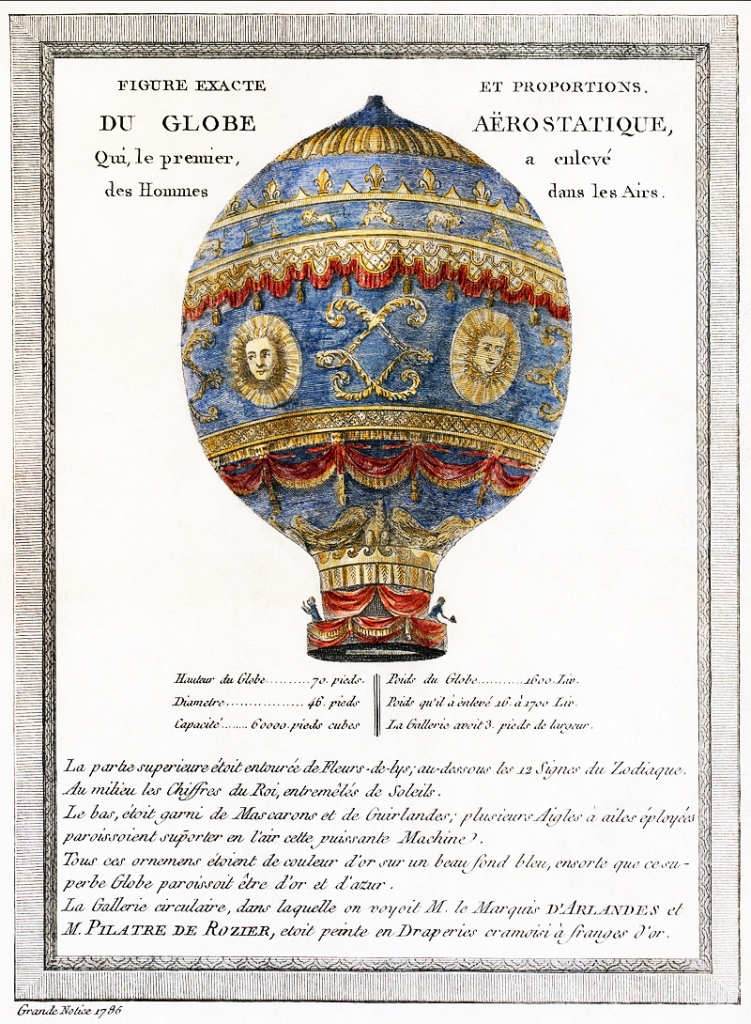 FIGURE EXACTE ET PROPORTIONS.
DU GLOBE AËROSTATIQUE,
Qui, le premier, a enlevé
des Hommes dans les Airs.
Hauteur du Globe..........70. pieds.
Diametre..................46. pieds
Capacité.......60000. pieds cubes
Poids du Globe............1600. Liv.
Poids qu'il à enlevé 16. à 1700 Liv.
La Gallerie avoit 3. pieds de largeur.
La partie superieure étoit entourée de Fleurs-de-lys; au-dessous les 12 Signes du Zodiaque.
Au milieu les Chiffres du Roi, entremêlés de Soleils.
Le bas, étoit garni de Mascarons et de Guirlandes; plusieurs Aigles à ailes éployées
paroissoient suporter en l'air cette puissante Machine.
Tous ces ornemens étoient de couleur d'or sur un beau fond bleu, ensorte que ce su-
perbe Globe paroissoit être d'or et d'azur.
La Gallerie circulaire, dans laquelle on voyoit M. le Marquis D'ARLANDES et
M. PILATRE DE ROZIER, etoit peinte en Draperies cramoisi à franges d'or.
Grande Notice 1786